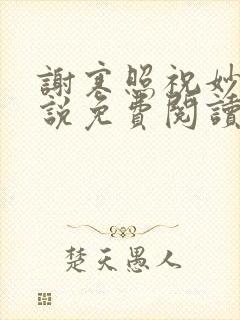 謝寒照祝妙
說免費閱讀
楚天愚人